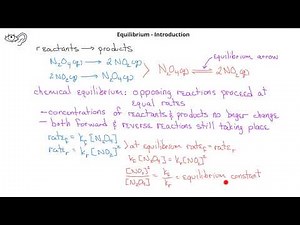 Equilibrium - Introduction
reactants → products
N₂O₄(g) → 2NO₂(g)
2NO₂(g) → N₂O₄(g)
N₂O₄(g) ⇌ 2NO₂(g)
equilibrium arrow
chemical equilibrium: opposing reactions proceed at
equal rates
- concentrations of reactants & products no longer change
- both forward & reverse reactions still taking place
rate_f = k_f [N₂O₄]
rate_r = k_r [NO₂]²
at equilibrium rate_f = rate_r
k_f [N₂O₄] = k_r [NO₂]²
[NO₂]² / [N₂O₄] = k_f / k_r = equilibrium constant